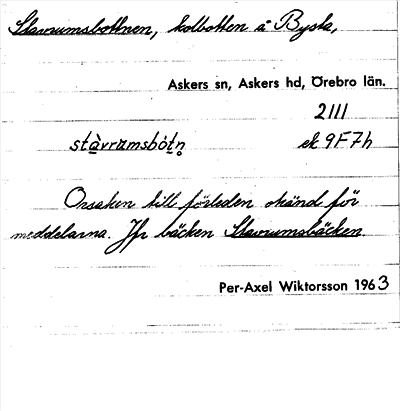 Stavrumsbottnen, kolbotten å Bysta,
Askers sn, Askers hd, Örebro län.
2111
stàvrumsbòtn̥ ek 9F7h
Orsaken till förleden okänd för
meddelarna. Jfr bäcken Stavrumsbäcken.
Per-Axel Wiktorsson 1963